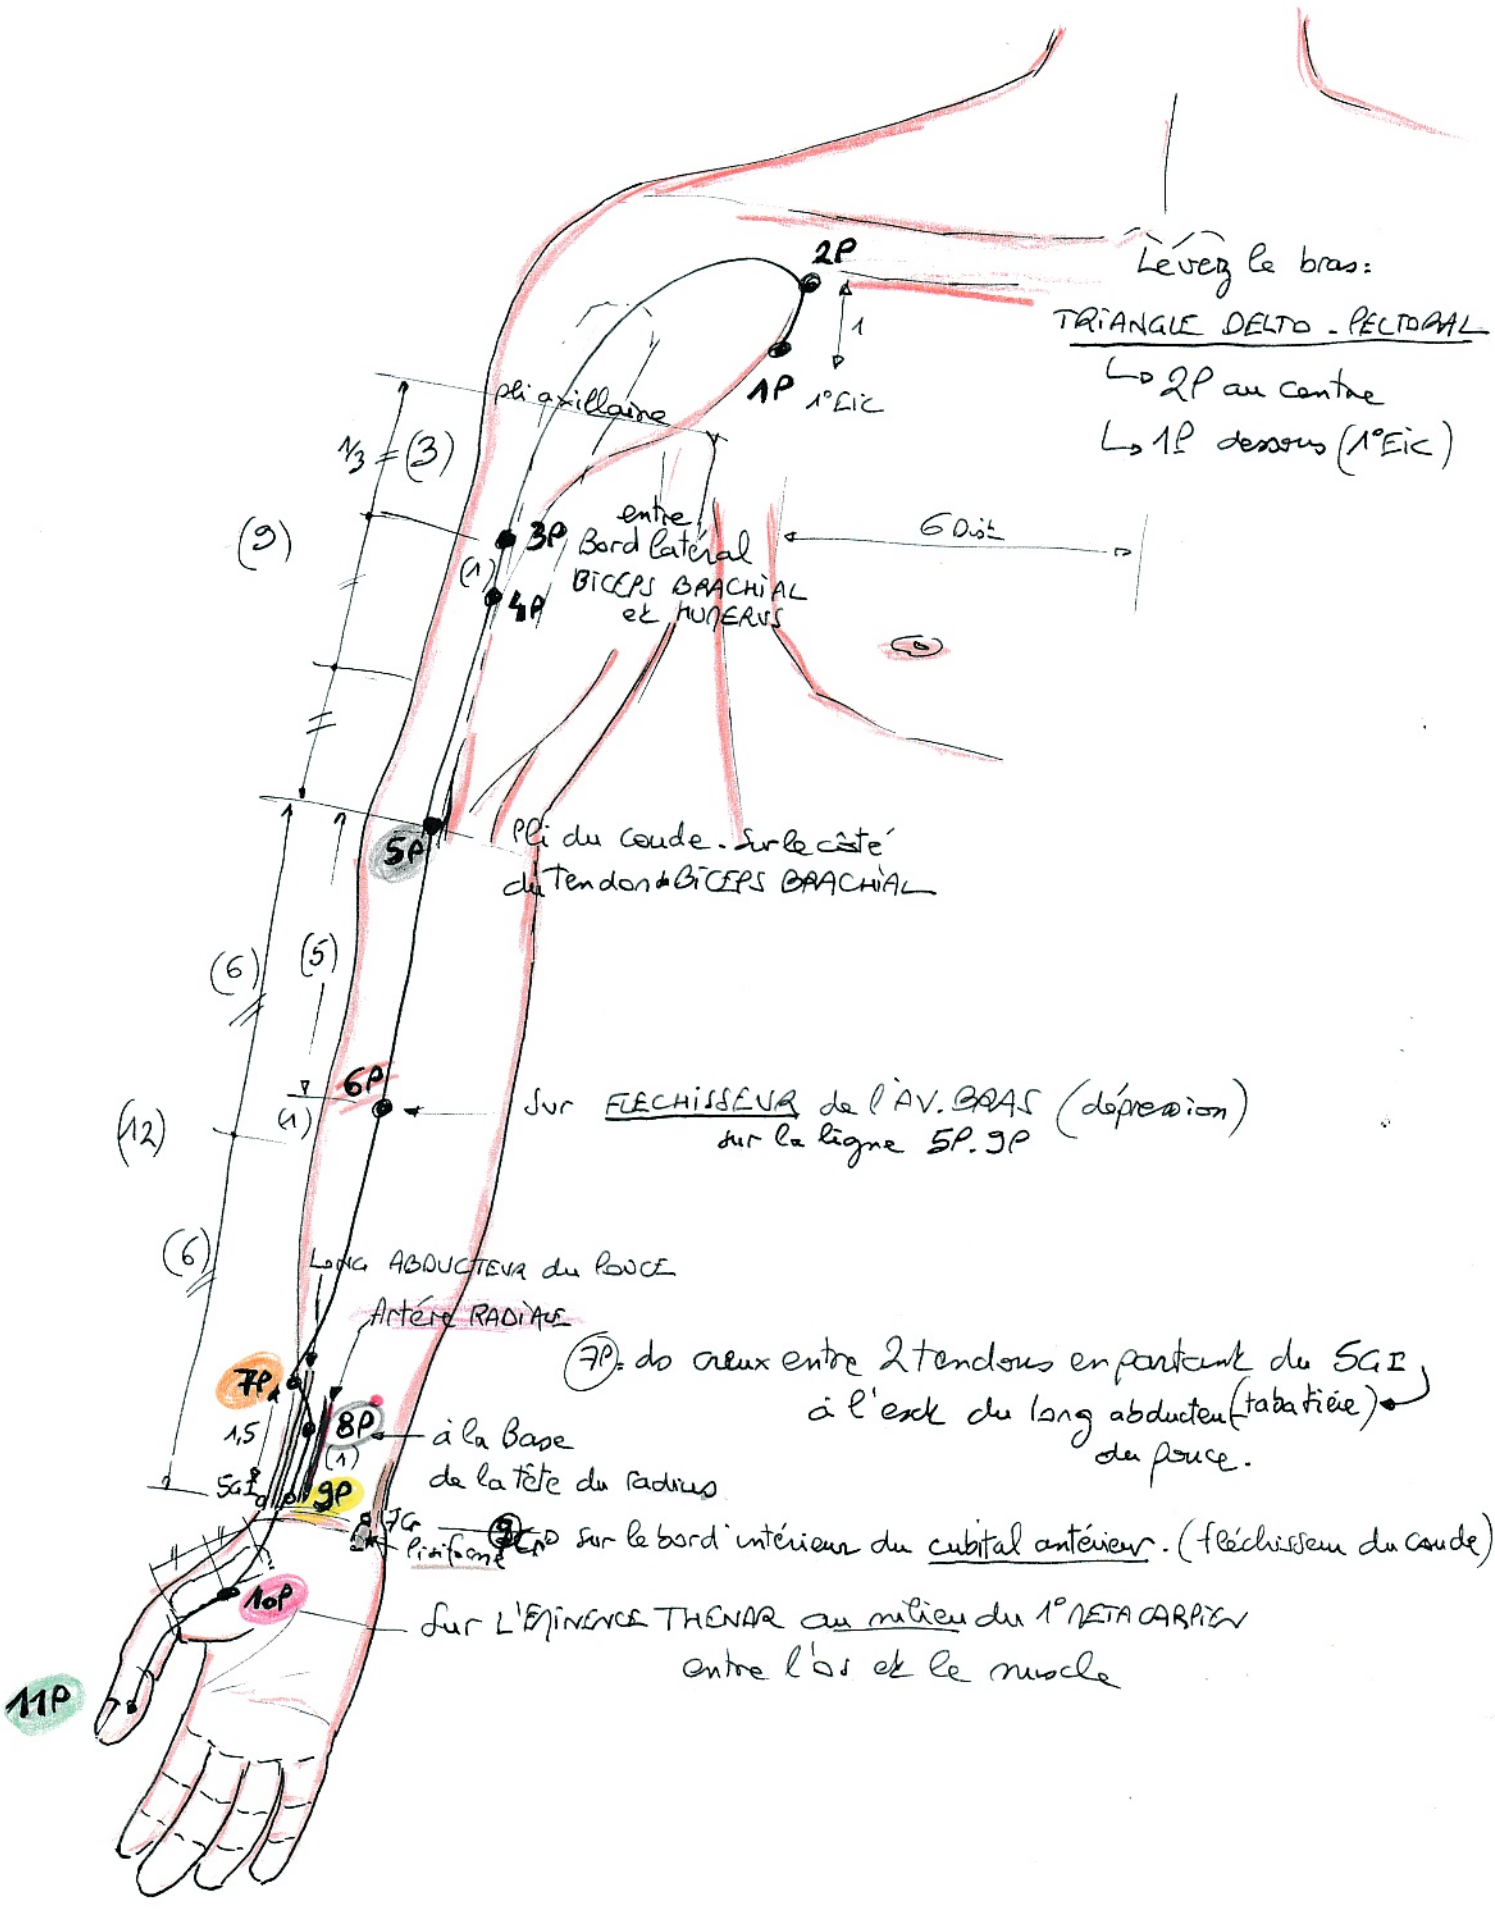 2P
Levez le bras:
1
TRIANGLE DELTO-PECTORAL
1P 1°Eic
↳ 2P au centre
↳ 1P dessous (1°Eic)
pli axillaire
1/3 = (3)
(9)
6 Dist
3P
entre
Bord latéral
(1)
BICEPS BRACHIAL
4P
et HUMERUS
5P
Pli du coude. Sur le côté
du Tendon du BICEPS BRACHIAL
(6)
(5)
6P
(1)
Sur FLECHISSEUR de l'AV. BRAS (dépression)
sur la ligne 5P. 9P
(12)
(6)
LONG ABDUCTEUR du POUCE
Artère RADIALE
7P
7P = creux entre 2 tendons en partant du 5GI
à l'ext du long abducteur (tabatière)
du pouce.
1,5
8P
(1)
à la Base
de la tête du radius
5GI
9P
7C
Pisiforme
sur le bord intérieur du cubital antérieur. (fléchisseur du coude)
10P
Sur L'EMINENCE THENAR au milieu du 1° METACARPIEN
entre l'os et le muscle
11P